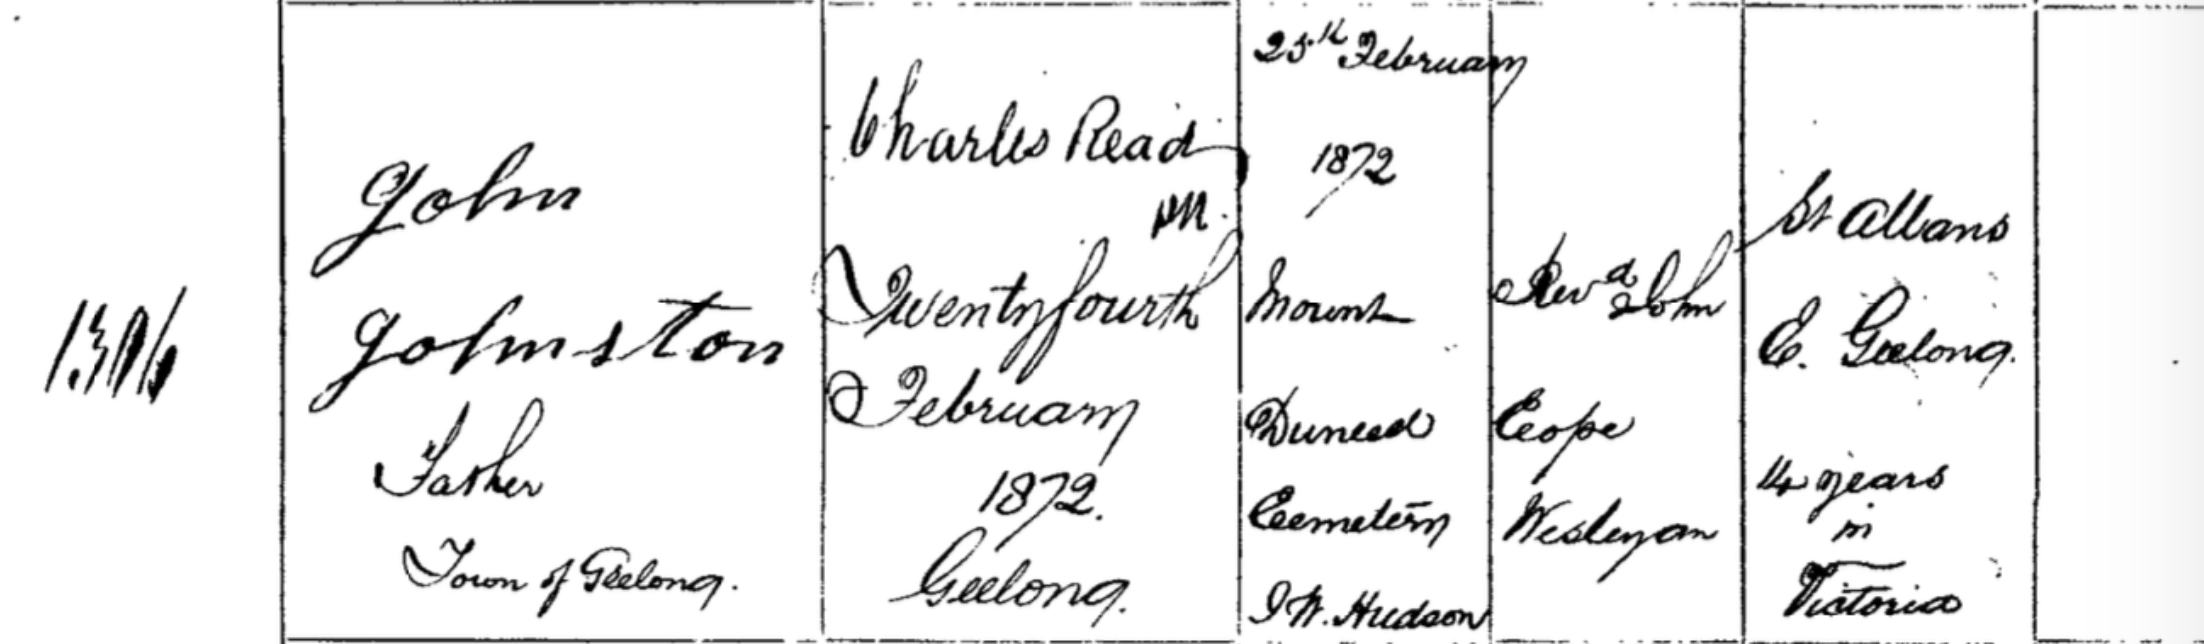 1306
John
Johnston
Father
Town of Geelong.
Charles Read
Twenty fourth
February
1872.
Geelong.
25th February
1872
Mount
Duneed
Cemetery
J W. Hudson
Revd John
Cope
Wesleyan
St Albans
E. Geelong.
14 years
in
Victoria